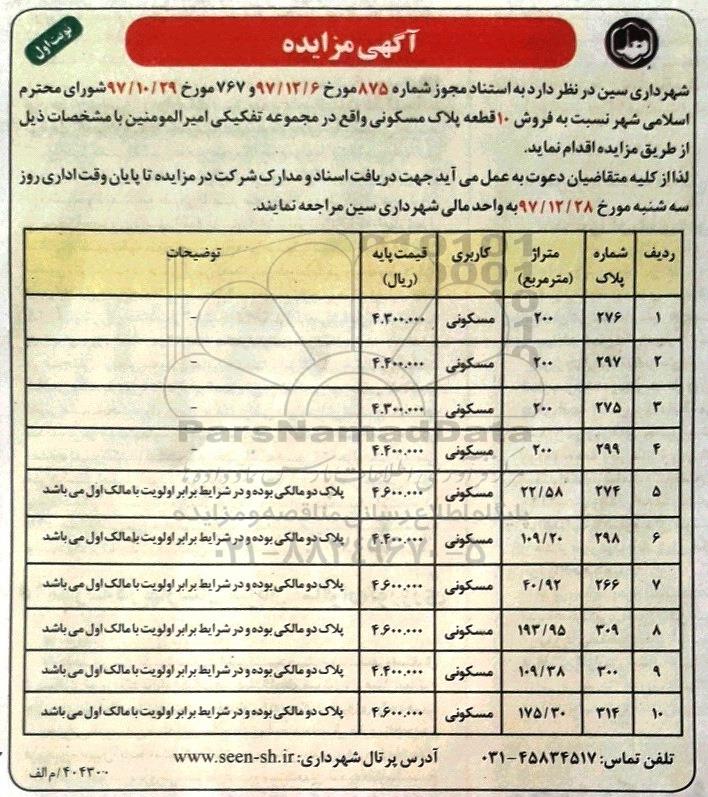 نوبت اول
آگهی مزایده
شهرداری سین در نظر دارد به استناد مجوز شماره ۸۷۵ مورخ ۹۷/۱۲/۶ و ۷۶۷ مورخ ۹۷/۱۰/۲۹ شورای محترم
اسلامی شهر نسبت به فروش ۱۰ قطعه پلاک مسکونی واقع در مجموعه تفکیکی امیرالمومنین با مشخصات ذیل
از طریق مزایده اقدام نماید.
لذا از کلیه متقاضیان دعوت به عمل می آید جهت دریافت اسناد و مدارک شرکت در مزایده تا پایان وقت اداری روز
سه شنبه مورخ ۹۷/۱۲/۲۸ به واحد مالی شهرداری سین مراجعه نمایند.
ردیف شماره پلاک متراژ (مترمربع) کاربری قیمت پایه (ریال) توضیحات
۱ ۲۷۶ ۲۰۰ مسکونی ۴.۳۰۰.۰۰۰ –
۲ ۲۹۷ ۲۰۰ مسکونی ۴.۴۰۰.۰۰۰ –
۳ ۲۷۵ ۲۰۰ مسکونی ۴.۳۰۰.۰۰۰ –
۴ ۲۹۹ ۲۰۰ مسکونی ۴.۴۰۰.۰۰۰ –
۵ ۲۷۴ ۲۲/۵۸ مسکونی ۴.۶۰۰.۰۰۰ پلاک دو مالکی بوده و در شرایط برابر اولویت با مالک اول می باشد
۶ ۲۹۸ ۱۰۹/۲۰ مسکونی ۴.۴۰۰.۰۰۰ پلاک دو مالکی بوده و در شرایط برابر اولویت با مالک اول می باشد
۷ ۲۶۶ ۴۰/۹۲ مسکونی ۴.۶۰۰.۰۰۰ پلاک دو مالکی بوده و در شرایط برابر اولویت با مالک اول می باشد
۸ ۳۰۹ ۱۹۳/۹۵ مسکونی ۴.۶۰۰.۰۰۰ پلاک دو مالکی بوده و در شرایط برابر اولویت با مالک اول می باشد
۹ ۳۰۰ ۱۰۹/۳۸ مسکونی ۴.۴۰۰.۰۰۰ پلاک دو مالکی بوده و در شرایط برابر اولویت با مالک اول می باشد
۱۰ ۳۱۴ ۱۷۵/۳۰ مسکونی ۴.۶۰۰.۰۰۰ پلاک دو مالکی بوده و در شرایط برابر اولویت با مالک اول می باشد
ParsNamadData
پایگاه اطلاع رسانی مناقصه و مزایده
۰۲۱-۸۸۳۴۹۶۷۰-۵
تلفن تماس: ۴۵۸۳۴۵۱۷-۰۳۱ آدرس پرتال شهرداری: www.seen-sh.ir
۴۰۴۳۰۰/م الف